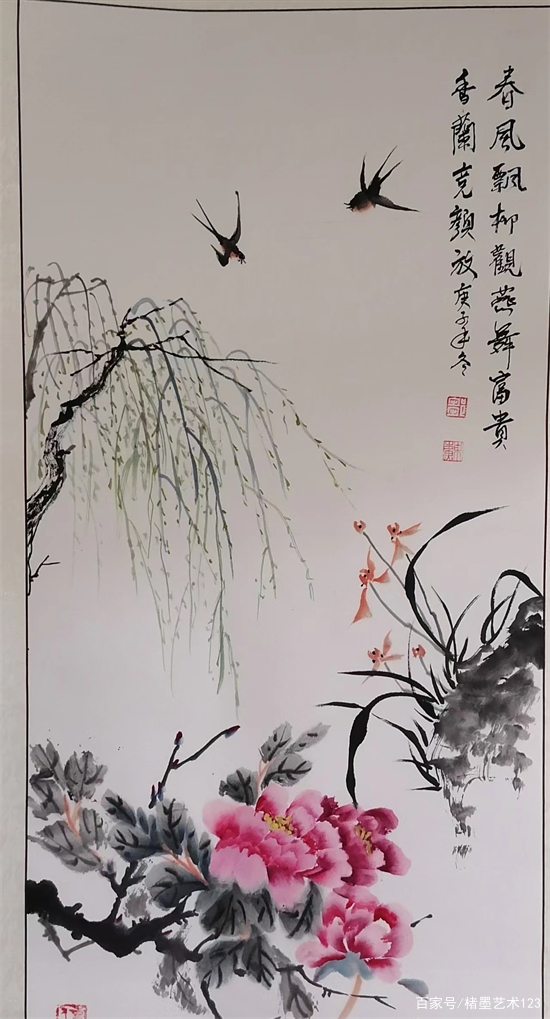 春風飄柳觀燕舞富貴
香蘭竞顏放庚子年冬
百家号/楮墨艺术123